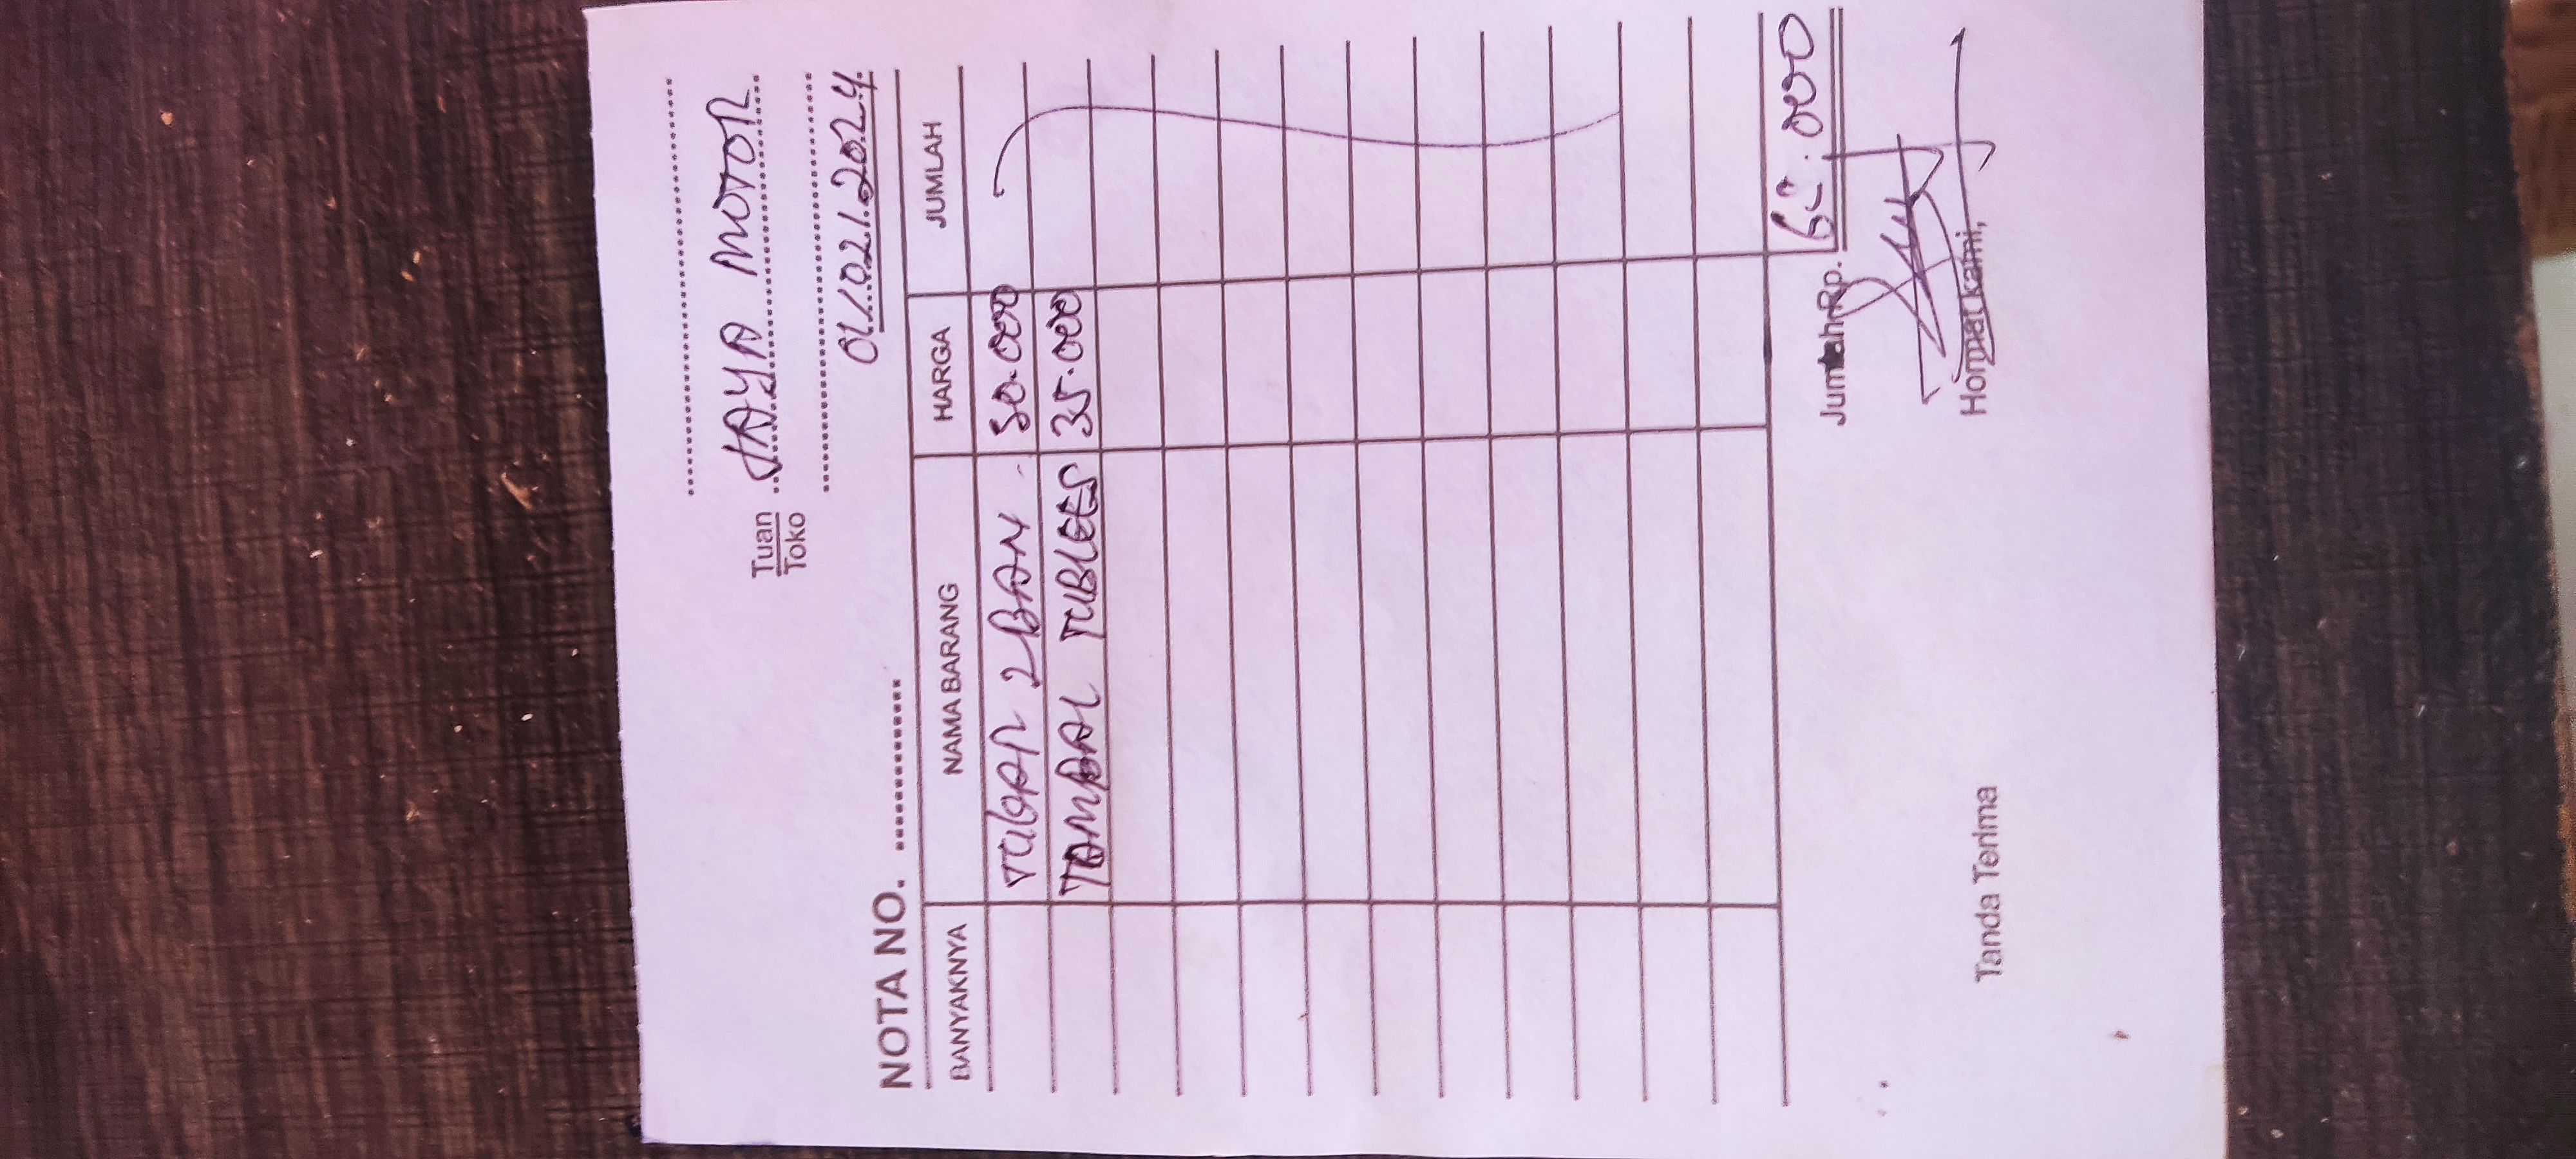 Tuan
Toko
JAYA MOTOR
01/02/2024
NOTA NO.
BANYAKNYA NAMA BARANG HARGA JUMLAH
TUKAR 2 BAN 30.000
TOMBAL TUBLEES 35.000
Jumlah Rp.
Tanda Terima Hormat kami,